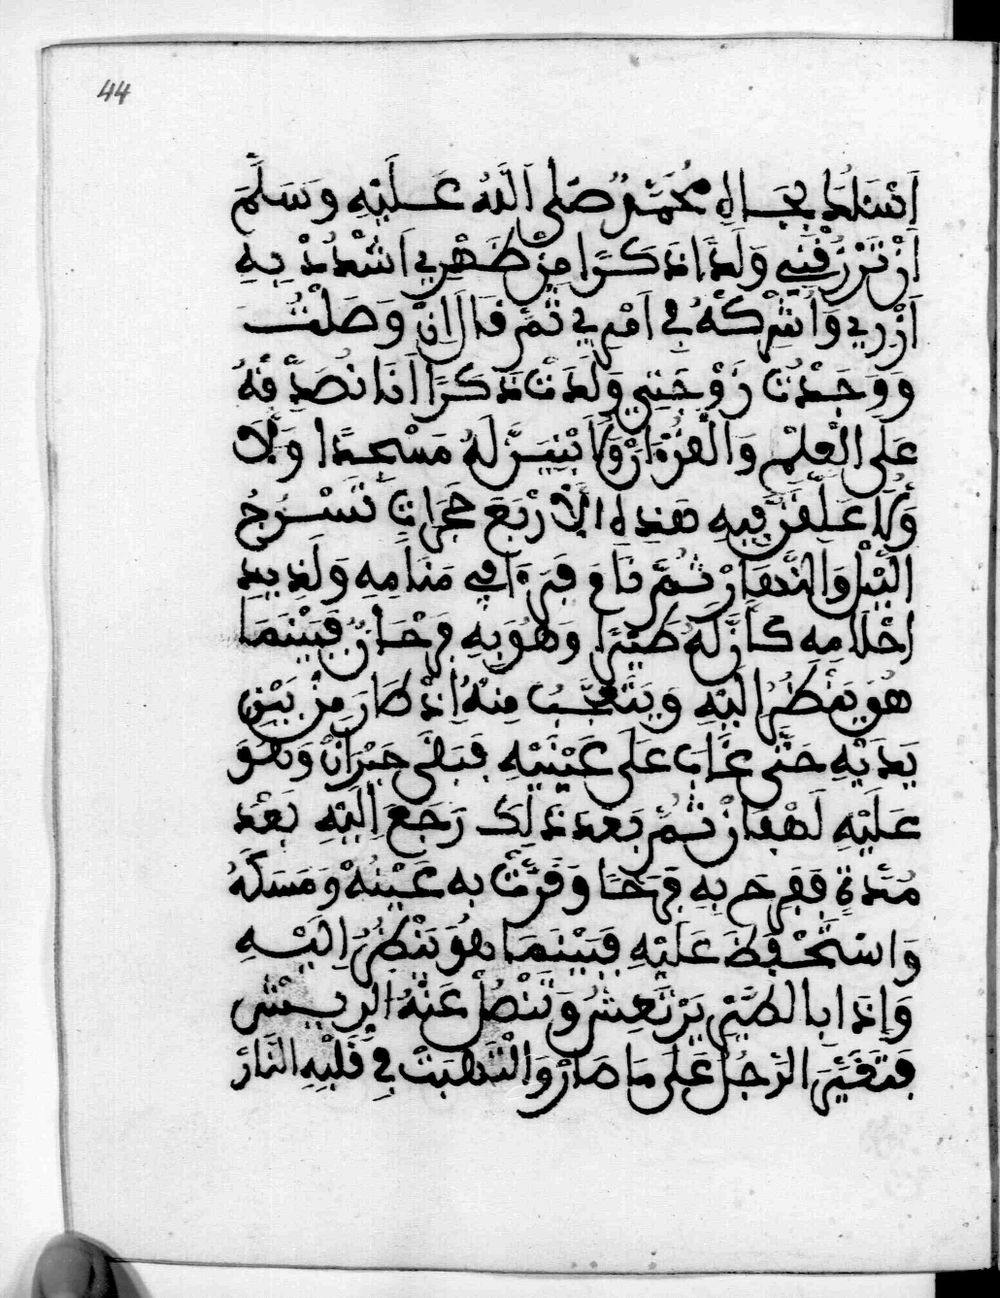 44
اَسْئَلُكَ بِجَاهِ مُحَمَّدٍ صَلَّى اَللَّهُ عَلَيْهِ وَسَلَّمَ
اَنْ تَرْزُقَنِي وَلَدًا ذَكَرًا مِنْ ظَهْرِي اَشْدُدْ بِهِ
اَزْرِي وَاُشْرِكْهُ فِي اَمْرِي ثُمَّ قَالَ اِنْ وَصَلْتُ
وَوَجَدْتُ زَوْجَتِي وَلَدَتْ ذَكَرًا اَنَا نُصَدِّقُهُ
عَلَى الْعِلْمِ وَالْقُرْءَانْ وَلَا نَبْنِيَنَّ لَهُ مَسْجِدًا وَلَا
وَلَا عَلِّقَنَّ فِيهِ هَذِهِ الْاَرْبَعَ حَجَرَاتْ تَسْرُجُ
اللَّيْلْ وَالنَّهَارْ ثُمَّ نَامَ فَرَءَا فِي مَنَامِهِ وَلَذِيذِ
اَحْلَامِهِ كَاَنَّ لَهُ طَيْرًا وَهُوَ بِهِ فَرْحَانٌ فَبَيْنَمَا
هُوَ يَنْظُرُ اِلَيْهِ وَيَتَعَجَّبُ مِنْهُ اِذْ طَارَ مِنْ بَيْنِ
يَدَيْهِ حَتَّى غَابَ عَلَى عَيْنَيْهِ فَبَقَى حَيْرَانْ وَهُوَ
عَلَيْهِ لَهْفَانْ ثُمَّ بَعْدَ ذَلِكَ رَجَعَ اِلَيْهِ بَعْدَ
مُدَّةٍ فَفَرِحَ بِهِ فَرَحًا وَقَرَّتْ بِهِ عَيْنُهُ وَمَسَكَهُ
وَاسْتَحْفَظَ عَلَيْهِ فَبَيْنَمَا هُوَ يَنْظُرُ اِلَيْهِ
وَاِذَا بِالطَّيْرِ يَرْتَعِشُ وَتَنْصُلْ عَنْهُ الرِّيشْ
فَتَغَيَّرَ الرَّجُلُ عَلَى مَا صَارْ وَالْتَهَبَتْ فِي قَلْبِهِ النَّارْ